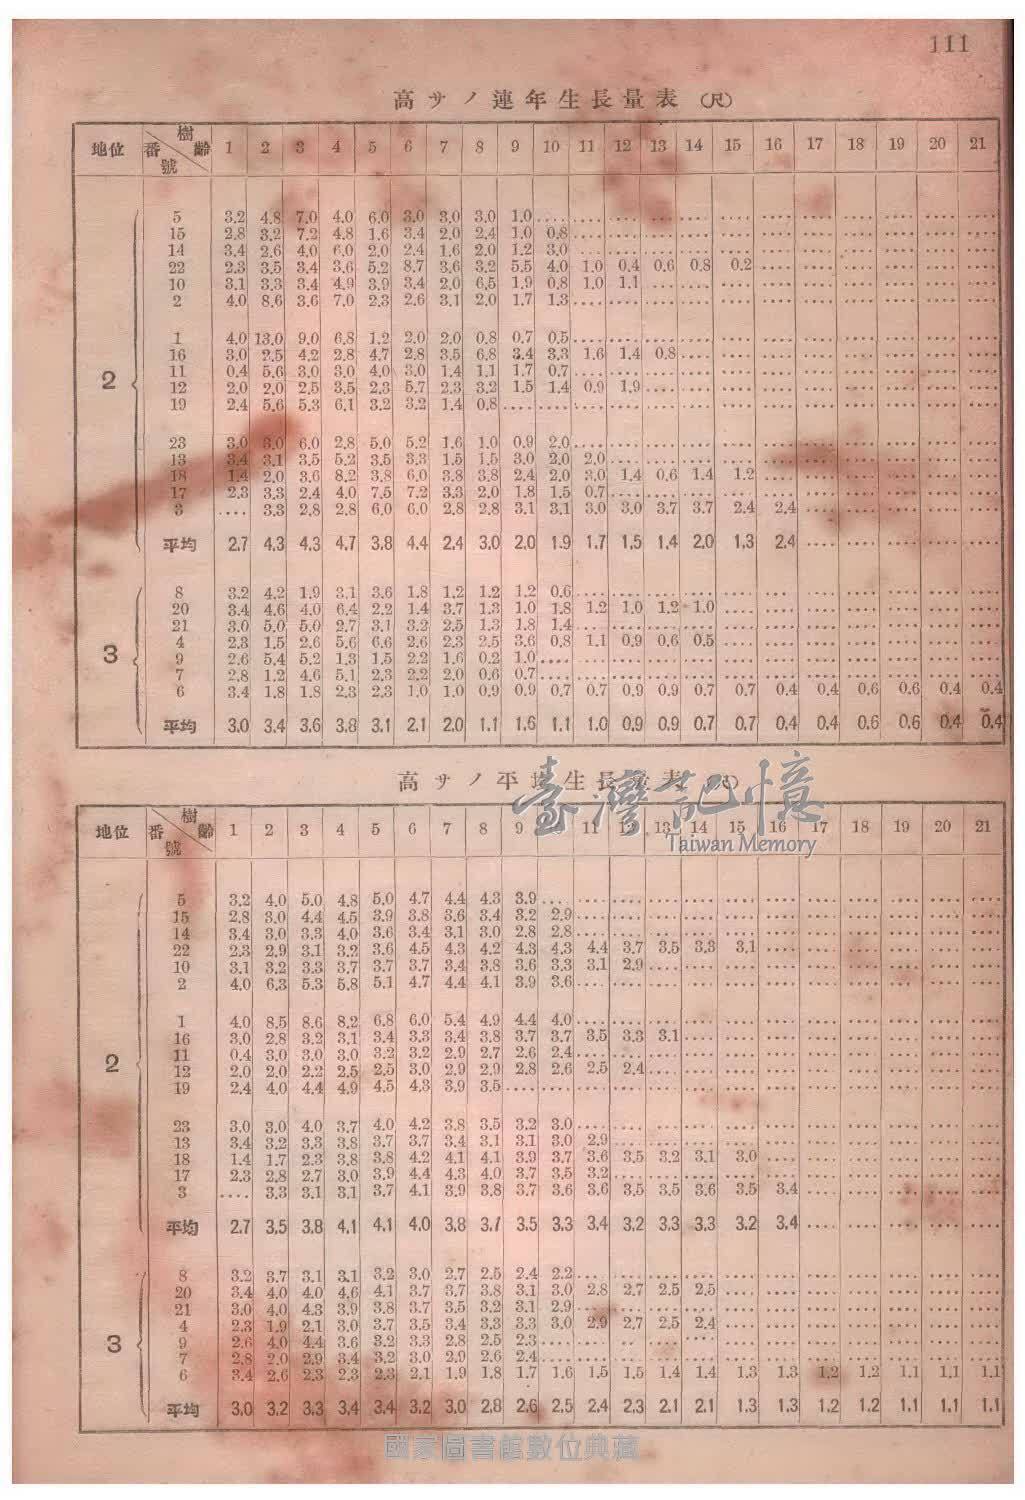 111
高サノ連年生長量表 (尺)
地位 番號 樹齡 1 2 3 4 5 6 7 8 9 10 11 12 13 14 15 16 17 18 19 20 21
5 3.2 4.8 7.0 4.0 6.0 3.0 3.0 3.0 1.0
15 2.8 3.2 7.2 4.8 1.6 3.4 2.0 2.4 1.0 0.8
14 3.4 2.6 4.0 6.0 2.0 2.4 1.6 2.0 1.2 3.0
22 2.3 3.5 3.4 3.6 5.2 8.7 3.6 3.2 5.5 4.0 1.0 0.4 0.6 0.8 0.2
10 3.1 3.3 3.4 4.9 3.9 3.4 2.0 6.5 1.9 0.8 1.0 1.1
2 4.0 8.6 3.6 7.0 2.3 2.6 3.1 2.0 1.7 1.3
1 4.0 13.0 9.0 6.8 1.2 2.0 2.0 0.8 0.7 0.5
16 3.0 2.5 4.2 2.8 4.7 2.8 3.5 6.8 3.4 3.3 1.6 1.4 0.8
2 11 0.4 5.6 3.0 3.0 4.0 3.0 1.4 1.1 1.7 0.7
12 2.0 2.0 2.5 3.5 2.3 5.7 2.3 3.2 1.5 1.4 0.9 1.9
19 2.4 5.6 5.3 6.1 3.2 3.2 1.4 0.8
23 3.0 3.0 6.0 2.8 5.0 5.2 1.6 1.0 0.9 2.0
13 3.4 3.1 3.5 5.2 3.5 3.3 1.5 1.5 3.0 2.0 2.0
18 1.4 2.0 3.6 8.2 3.8 6.0 3.8 3.8 2.4 2.0 3.0 1.4 0.6 1.4 1.2
17 2.3 3.3 2.4 4.0 7.5 7.2 3.3 2.0 1.8 1.5 0.7
3 .... 3.3 2.8 2.8 6.0 6.0 2.8 2.8 3.1 3.1 3.0 3.0 3.7 3.7 2.4 2.4
平均 2.7 4.3 4.3 4.7 3.8 4.4 2.4 3.0 2.0 1.9 1.7 1.5 1.4 2.0 1.3 2.4
8 3.2 4.2 1.9 3.1 3.6 1.8 1.2 1.2 1.2 0.6
20 3.4 4.6 4.0 6.4 2.2 1.4 3.7 1.3 1.0 1.8 1.2 1.0 1.2 1.0
21 3.0 5.0 5.0 2.7 3.1 3.2 2.5 1.3 1.8 1.4
3 4 2.3 1.5 2.6 5.6 6.6 2.6 2.3 2.5 3.6 0.8 1.1 0.9 0.6 0.5
9 2.6 5.4 5.2 1.3 1.5 2.2 1.6 0.2 1.0
7 2.8 1.2 4.6 5.1 2.3 2.2 2.0 0.6 0.7
6 3.4 1.8 1.8 2.3 2.3 1.0 1.0 0.9 0.9 0.7 0.7 0.9 0.9 0.7 0.7 0.4 0.4 0.6 0.6 0.4 0.4
平均 3.0 3.4 3.6 3.8 3.1 2.1 2.0 1.1 1.6 1.1 1.0 0.9 0.9 0.7 0.7 0.4 0.4 0.6 0.6 0.4 0.4
高サノ平均生長量表 (尺)
臺灣記憶
Taiwan Memory
地位 番號 樹齡 1 2 3 4 5 6 7 8 9 10 11 12 13 14 15 16 17 18 19 20 21
5 3.2 4.0 5.0 4.8 5.0 4.7 4.4 4.3 3.9
15 2.8 3.0 4.4 4.5 3.9 3.8 3.6 3.4 3.2 2.9
14 3.4 3.0 3.3 4.0 3.6 3.4 3.1 3.0 2.8 2.8
22 2.3 2.9 3.1 3.2 3.6 4.5 4.3 4.2 4.3 4.3 4.4 3.7 3.5 3.3 3.1
10 3.1 3.2 3.3 3.7 3.7 3.7 3.4 3.8 3.6 3.3 3.1 2.9
2 4.0 6.3 5.3 5.8 5.1 4.7 4.4 4.1 3.9 3.6
1 4.0 8.5 8.6 8.2 6.8 6.0 5.4 4.9 4.4 4.0
16 3.0 2.8 3.2 3.1 3.4 3.3 3.4 3.8 3.7 3.7 3.5 3.3 3.1
2 11 0.4 3.0 3.0 3.0 3.2 3.2 2.9 2.7 2.6 2.4
12 2.0 2.0 2.2 2.5 2.5 3.0 2.9 2.9 2.8 2.6 2.5 2.4
19 2.4 4.0 4.4 4.9 4.5 4.3 3.9 3.5
23 3.0 3.0 4.0 3.7 4.0 4.2 3.8 3.5 3.2 3.0
13 3.4 3.2 3.3 3.8 3.7 3.7 3.4 3.1 3.1 3.0 2.9
18 1.4 1.7 2.3 3.8 3.8 4.2 4.1 4.1 3.9 3.7 3.6 3.5 3.2 3.1 3.0
17 2.3 2.8 2.7 3.0 3.9 4.4 4.3 4.0 3.7 3.5 3.2
3 .... 3.3 3.1 3.1 3.7 4.1 3.9 3.8 3.7 3.6 3.6 3.5 3.5 3.6 3.5 3.4
平均 2.7 3.5 3.8 4.1 4.1 4.0 3.8 3.7 3.5 3.3 3.4 3.2 3.3 3.3 3.2 3.4
8 3.2 3.7 3.1 3.1 3.2 3.0 2.7 2.5 2.4 2.2
20 3.4 4.0 4.0 4.6 4.1 3.7 3.7 3.8 3.1 3.0 2.8 2.7 2.5 2.5
21 3.0 4.0 4.3 3.9 3.8 3.7 3.5 3.2 3.1 2.9
4 2.3 1.9 2.1 3.0 3.7 3.5 3.4 3.3 3.3 3.0 2.9 2.7 2.5 2.4
3 9 2.6 4.0 4.4 3.6 3.2 3.3 2.8 2.5 2.3
7 2.8 2.0 2.9 3.4 3.2 3.0 2.9 2.6 2.4
6 3.4 2.6 2.3 2.3 2.3 2.1 1.9 1.8 1.7 1.6 1.5 1.5 1.4 1.4 1.3 1.3 1.2 1.2 1.1 1.1 1.1
平均 3.0 3.2 3.3 3.4 3.4 3.2 3.0 2.8 2.6 2.5 2.4 2.3 2.1 2.1 1.3 1.3 1.2 1.2 1.1 1.1 1.1
國家圖書館數位典藏